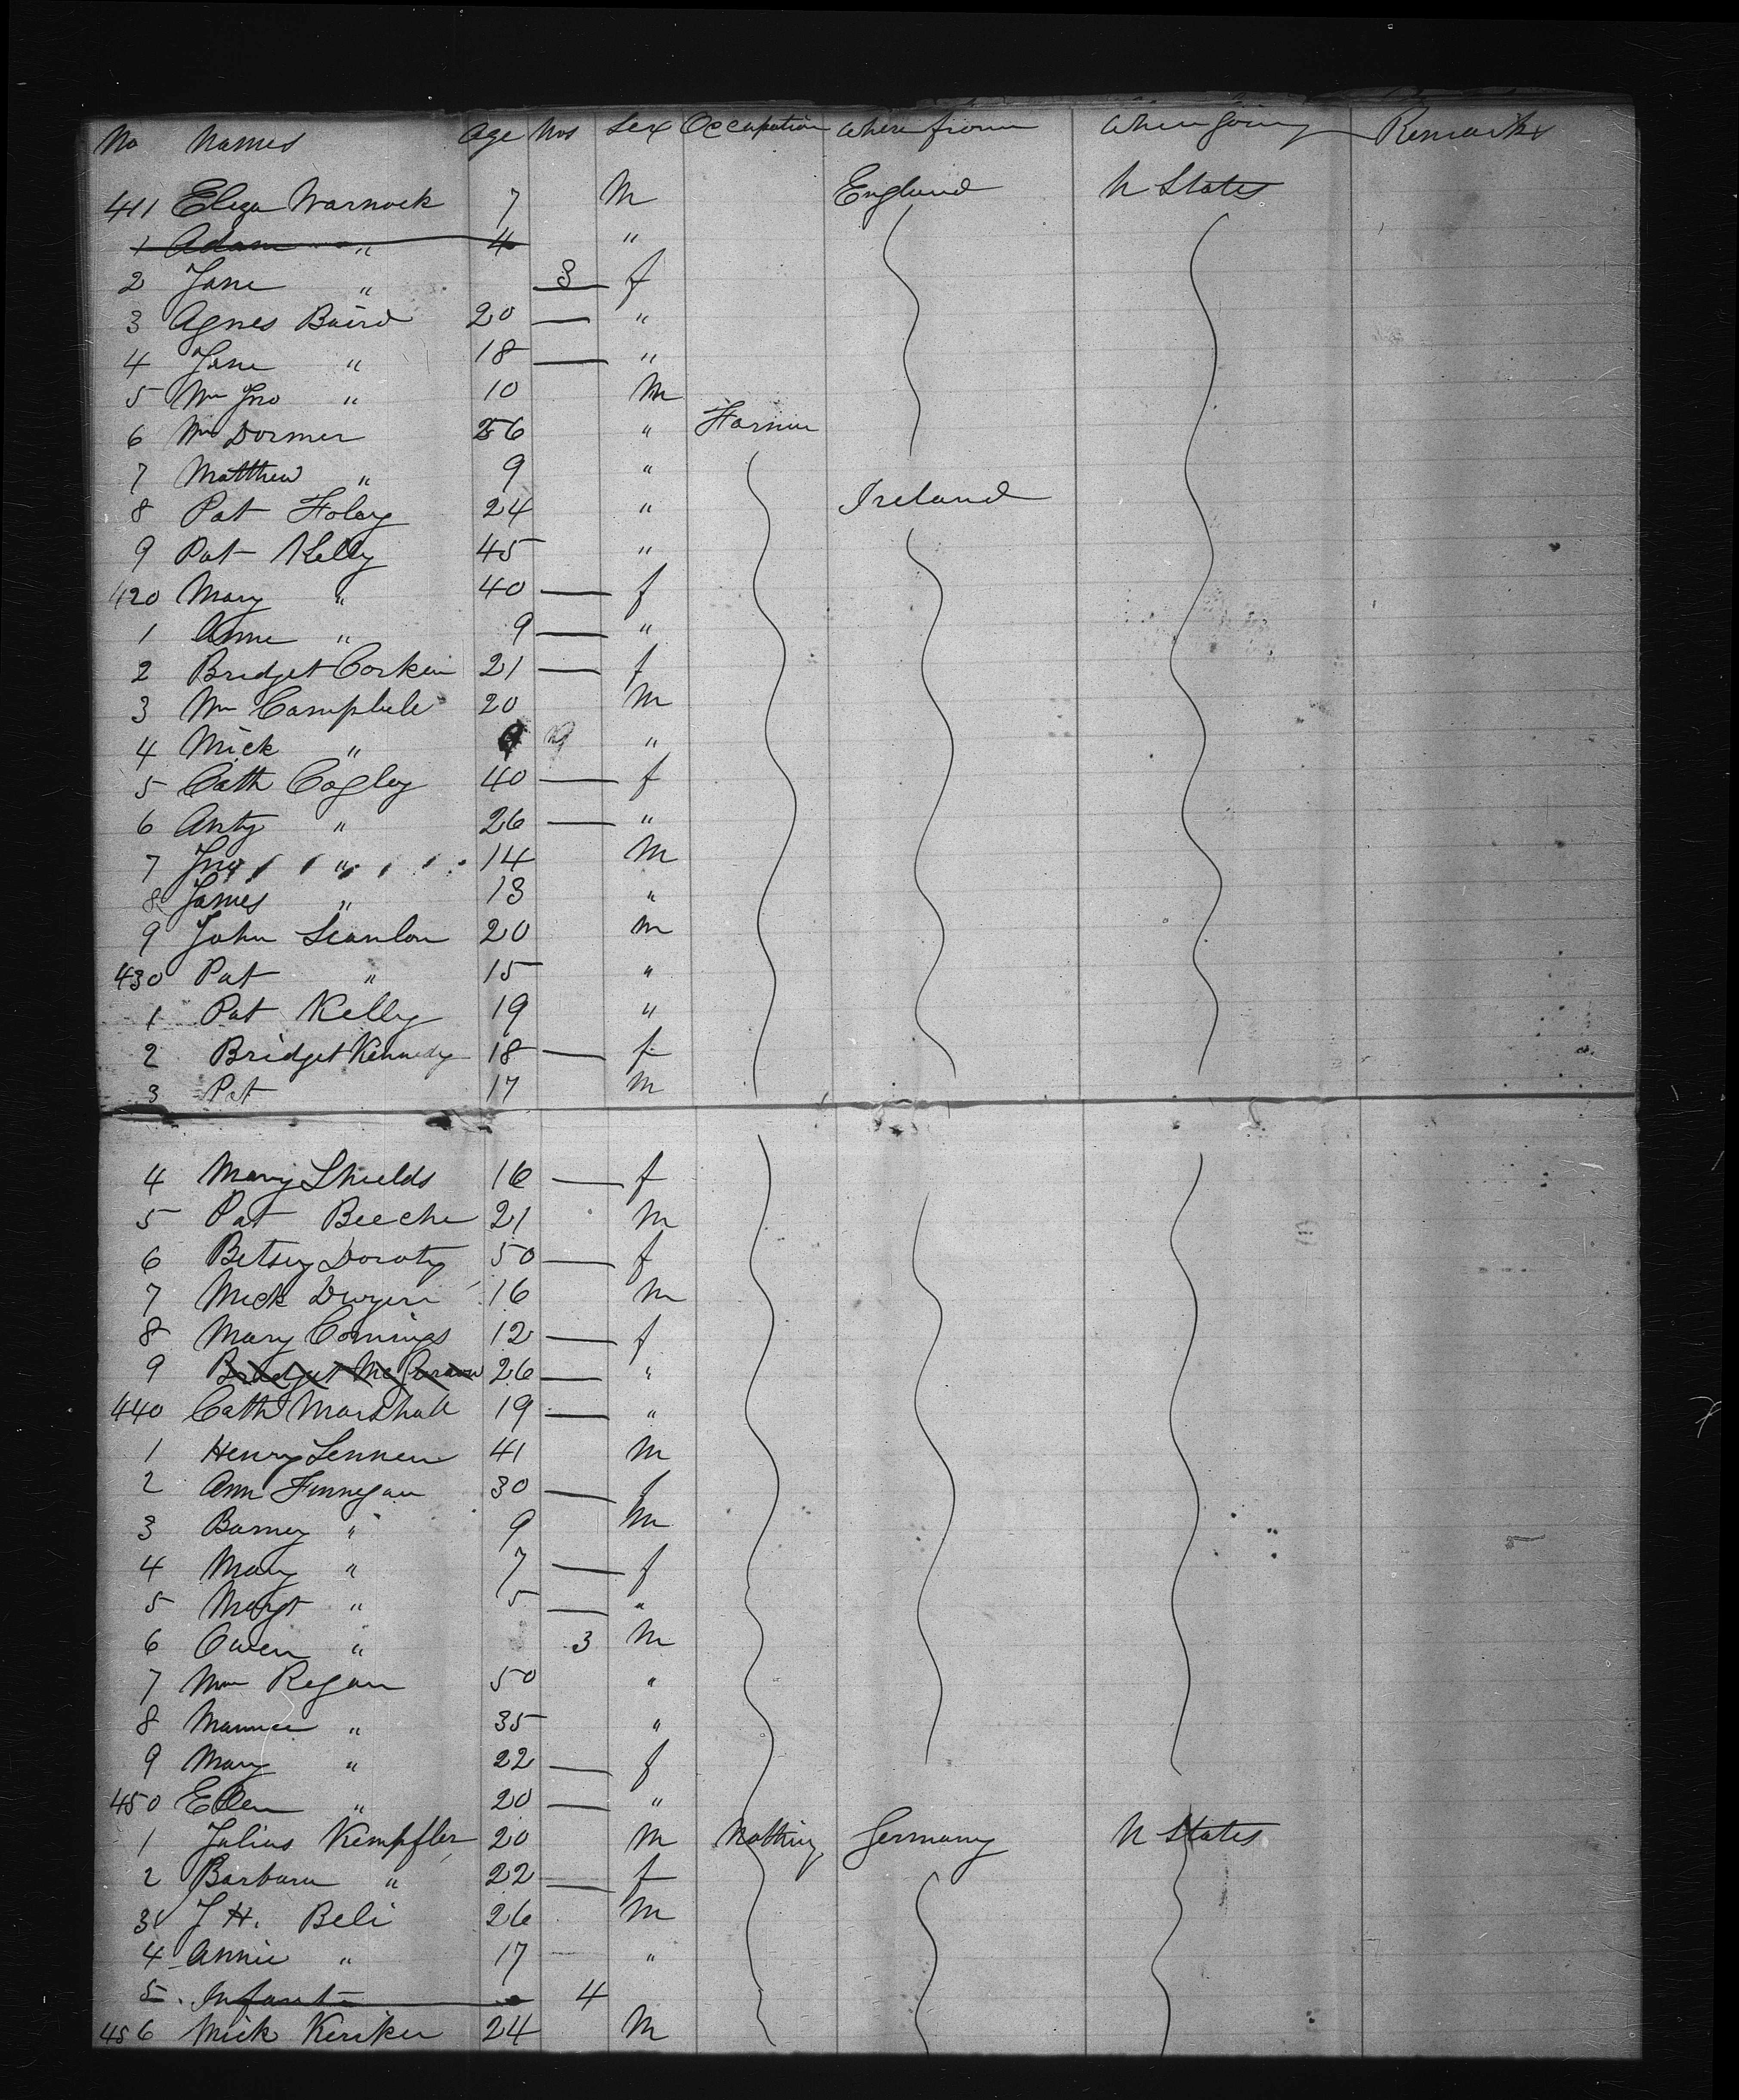 No Names Age Mos Sex Occupation Where from Where going Remarks
411 Eliza Warnock 7 M England U States
1 Adam " 4 "
2 Jane " 3 f
3 Agnes Baird 20 — "
4 Jane " 18 — "
5 Wm Jno " 10 M
6 Wm Dormer 26 " Farmer
7 Matthew " 9 "
8 Pat Foley 24 " Ireland
9 Pat Kelly 45 "
420 Mary " 40 — f
1 Anne " 9 — "
2 Bridget Corken 21 — f
3 Wm Campbell 20 M
4 Mick " 9 "
5 Cath Cogley 40 — f
6 Anty " 26 — "
7 Jno " 14 M
8 James " 13 "
9 John Scanlon 20 M
430 Pat " 15 "
1 Pat Kelly 19 "
2 Bridget Kennedy 18 — f
3 Pat 17 M
4 Mary Shields 16 — f
5 Pat Beeche 21 M
6 Betsey Doroty 50 — f
7 Mick Dwyer 16 M
8 Mary Comings 12 — f
9 Bridget McGraw 26 — "
440 Cath Marshall 19 — "
1 Henry Lennen 41 M
2 Ann Finnegan 30 — f
3 Barney " 9 M
4 Mary " 7 — f
5 Margt " 5 — "
6 Owen " 3 M
7 Wm Regan 50 "
8 Maurice " 35 "
9 Mary " 22 — f
450 Ellen " 20 — "
1 Julius Kempfler 20 M Nothing Germany U States
2 Barbara " 22 — f
3 J H. Beli 26 M
4 Annie " 17 — "
5 Infant 4
456 Mick Keriker 24 M